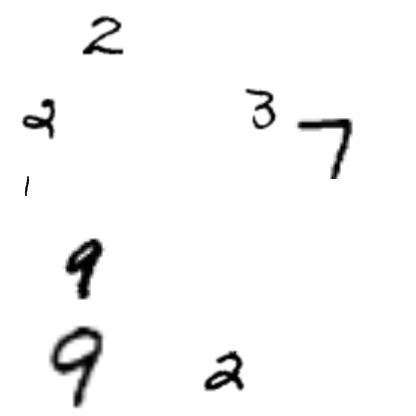 2
2 3 7
1
9
9 2